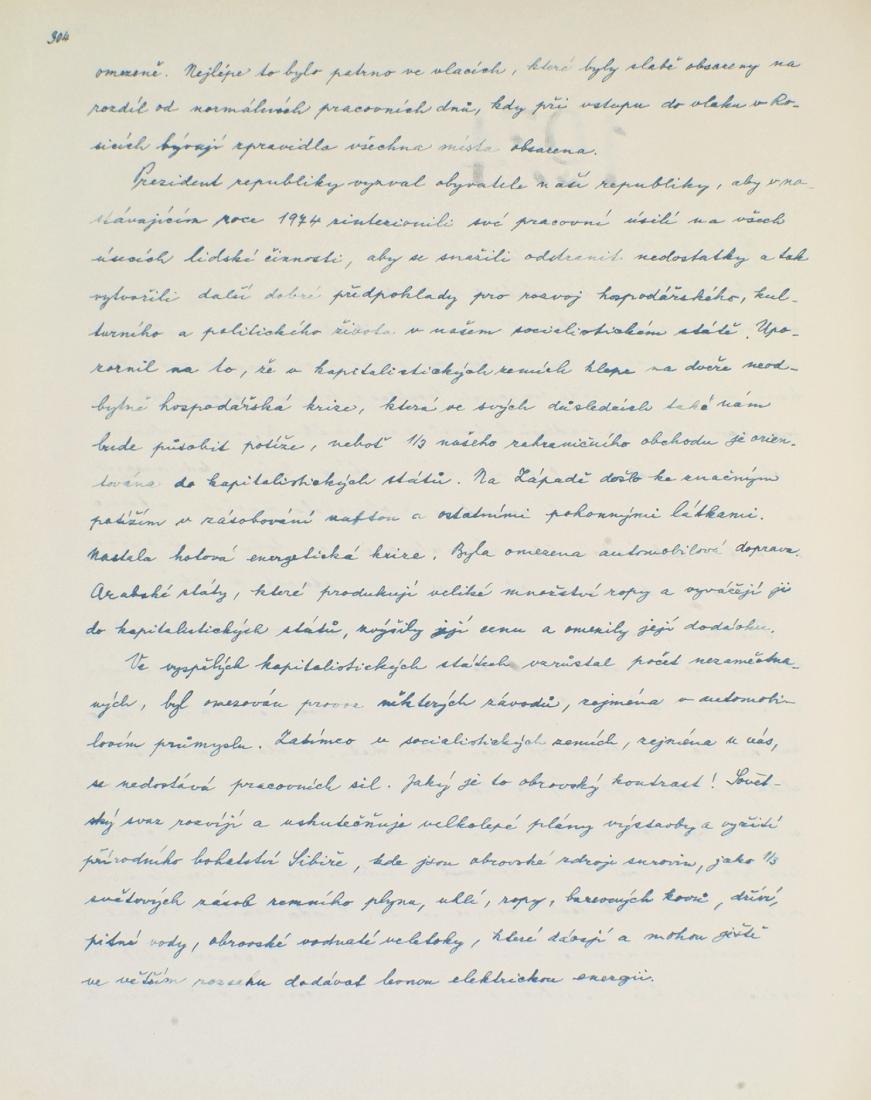 304
omezeně. Nejlépe to bylo patrno ve vlacích, které byly slabě obsazeny na
rozdíl od normálních pracovních dnů, kdy při vstupu do vlaku v Ro-
sicích bývají zpravidla všechna místa obsazena.
Prezident republiky vyzval obyvatele naší republiky, aby v na-
stávajícím roce 1974 zintezivnili své pracovní úsilí na všech
úsecích lidské činnosti, aby se snažili odstranit nedostatky a tak
vytvořili další dobré předpoklady pro rozvoj hospodářského, kul-
turního a politického života v našem socialistickém státě. Upo-
zornil na to, že v kapitalistických zemích klepe na dveře neod-
bytně hospodářská krize, která ve svých důsledcích také nám
bude působit potíže, neboť 1/3 našeho zahraničního obchodu je orien-
tována do kapitalistických států. Na Západě došlo ke značným
potížím v zásobování naftou a ostatními pohonnými látkami.
Nastala hotová energetická krize. Byla omezena automobilová doprava.
Arabské státy, které produkují veliké množství ropy a vyvážejí ji
do kapitalistických států, zvýšily její cenu a omezily její dodávku.
Ve vyspělých kapitalistických státech vzrůstal počet nezaměstna-
ných, byl omezován provoz některých závodů, zejména v automobi-
lovém průmyslu. Zatímco v socialistických zemích, zejména u nás,
se nedostává pracovních sil. Jaký je to obrovský kontrast! Sovět-
ský svaz rozvíjí a uskutečňuje velkolepé plány výstavby a využití
přírodního bohatství Sibiře, kde jsou obrovské zdroje surovin, jako 1/3
světových zásob zemního plynu, uhlí, ropy, barevných kovů, dříví,
pitné vody, obrovské vodnaté veletoky, které dávají a mohou ještě
ve větším rozsahu dodávat levnou elektrickou energii.